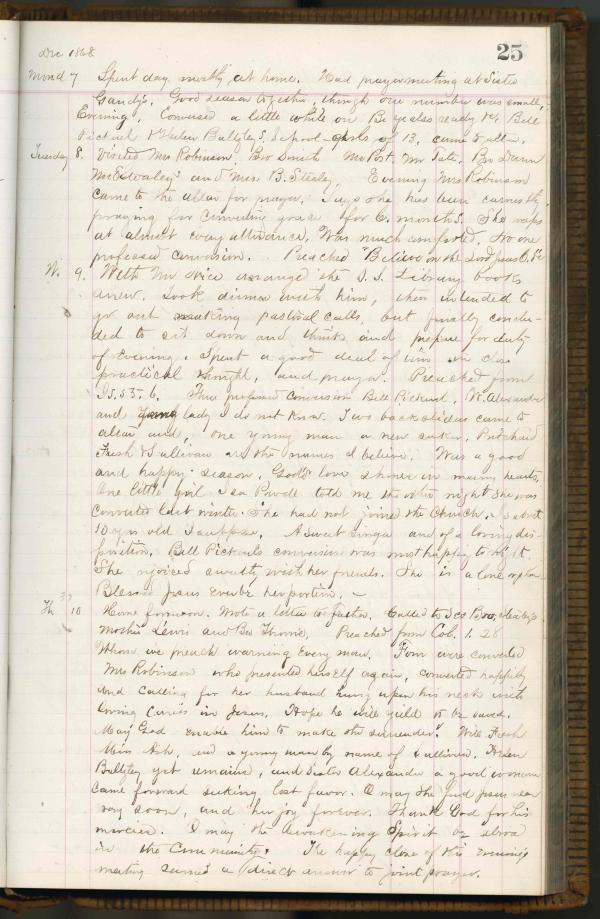 Dec 1868
25
Mond 7 Spent day mostly at home. Had prayermeeting at Sister
Gandy's. Good season together, though our number was small,
Evening, a little while on Be ye also ready &c. Bell
Pickrul & Helen School-girls of 13, came to altar.
Tuesday 8. Visited Mrs Robinson, Bro Smith Mr Tate, Bro Dunn
and Mrs. B. Stealey. Evening Mrs Robinson
came to the altar for prayer. Says she has been earnestly
praying for converting grace for 6. months. She weeps
at almost every utterance. Was much comforted. No one
professed conversion. Preached "Believe on the Lord Jesus C. &c
W. 9. With Mr Nice arranged the S. S. Library books
anew. Took dinner with him, then intended to
go out making pastoral calls, but finally conclu-
ded to sit down and think and prepare for duty
of Evening. Spent a good deal of time in close
practical thought, and prayer. Preached from
Is. 55. 6. Three professed conversion Bell Pickrul, W. Alexander
and young lady I do not know. Two backsliders came to
altar and, one young man a new seeker, Pritchard
Fresh & Sullivan are the names I believe. Was a good
and happy season, God's love shone in many hearts,
One little girl told me the other night she was
converted last winter. She had not joined the Church, is about
10 yrs old I suppose. A Sweet singer and of a loving dis-
position. Bell Pickruls conversion was most happy to night.
She rejoiced sweetly with her friends. She is a lone orphan
Blessed Jesus Ever be her portion. —
Th 10 Home forenoon. Wrote a letter to Father. Called to see Bro.
Mother Lewis and Bro Preached from Col. 1. 28
Whom we preach warning Every man. Four were converted
Mrs Robinson who presented herself again, converted happily
and calling for her husband hung upon his neck with
loving in Jesus. Hope he will yield to be saved.
May God enable him to make the surrender. Will Fresh
Miss Ash, and a young man by name of Sullivan. Helen
yet remains, and Sister Alexander a good woman
came forward seeking lost favor. O may she find Jesus near
very soon, and her joy forever. Thank God for his
mercies. O may the Awakening Spirit be abroad
in the Community. The happy close of this evening's
meeting seemed a direct answer to joint prayer.